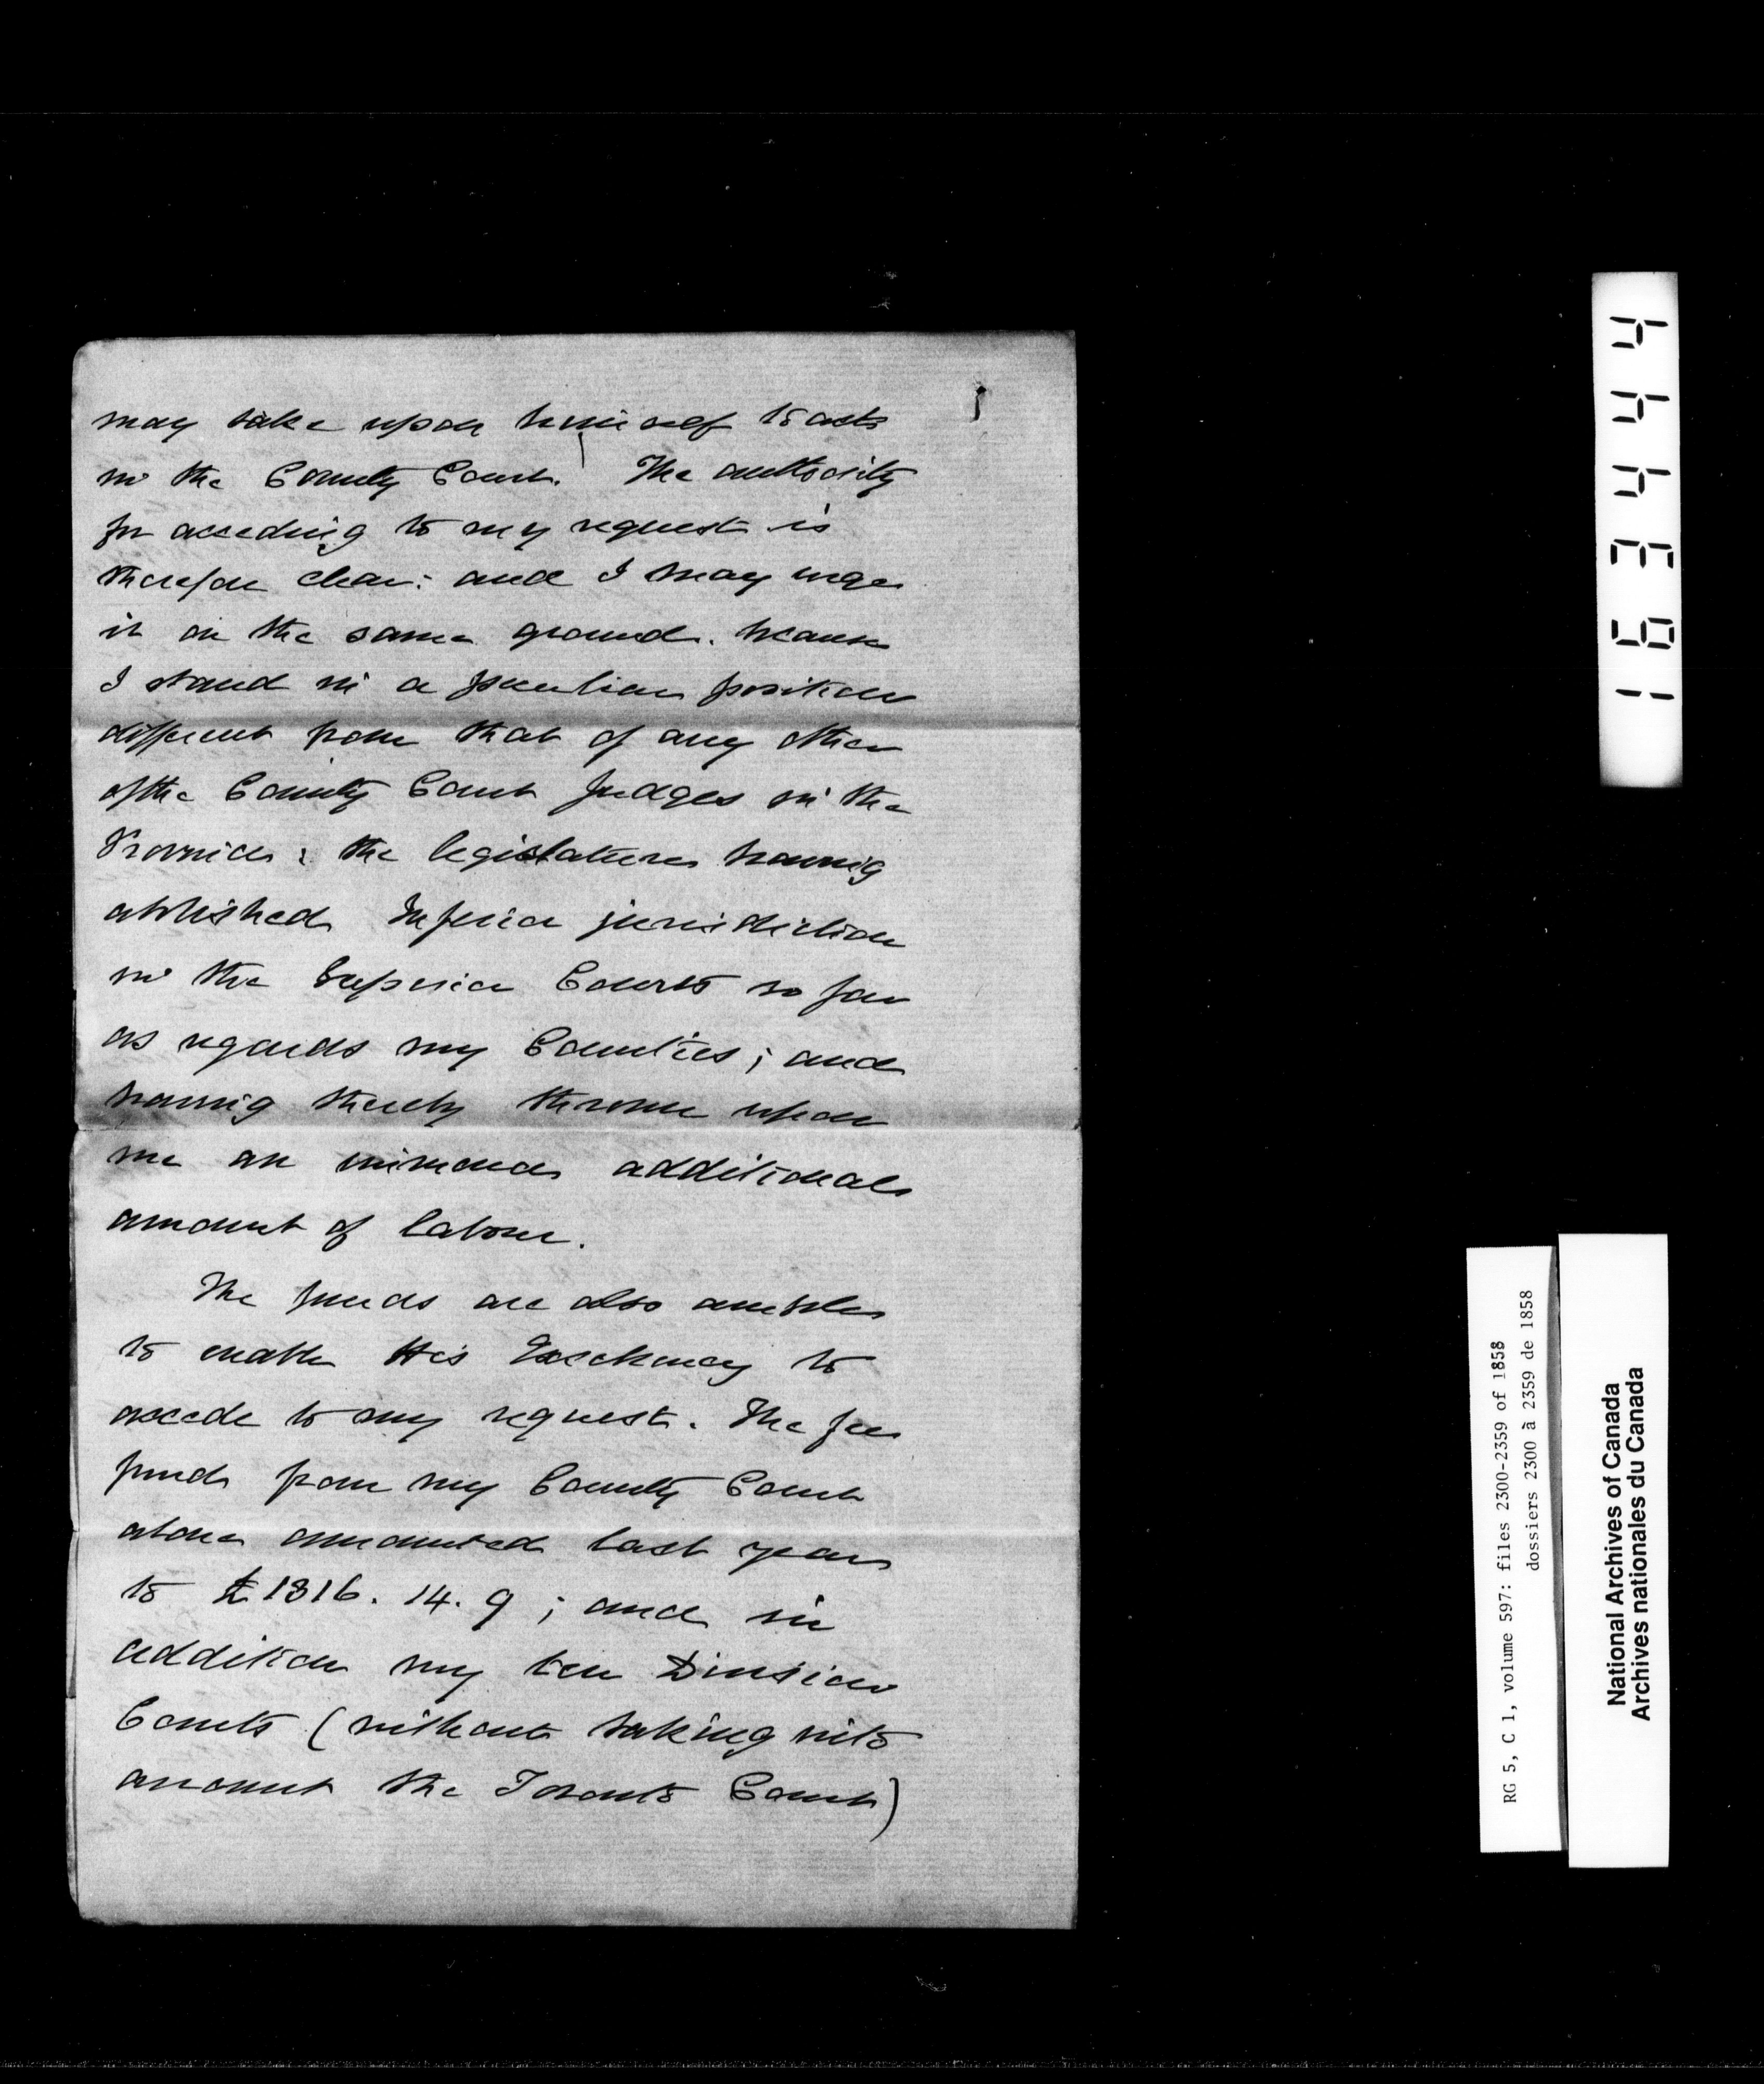 may take upon himself to act
in the County Court. The authority
for acceding to my request is
therefore clear: and I may urge
it on the same ground. because
I stand in a peculiar position
different from that of any other
of the County Court Judges in the
Province: the legislature having
abolished Inferior jurisdiction
in the Superior Courts so far
as regards my Counties; and
having thereby thrown upon
me an immense additional
amount of labour.
The funds are also ample
to enable His Excellency to
accede to my request. The fee
fund from my County Court
alone amounted last year
to £1316. 14. 9; and in
addition my ten Division
Courts (without taking into
account the Toronto Court)
163444
RG 5, C 1, volume 597: files 2300-2359 of 1858
dossiers 2300 à 2359 de 1858
National Archives of Canada
Archives nationales du Canada